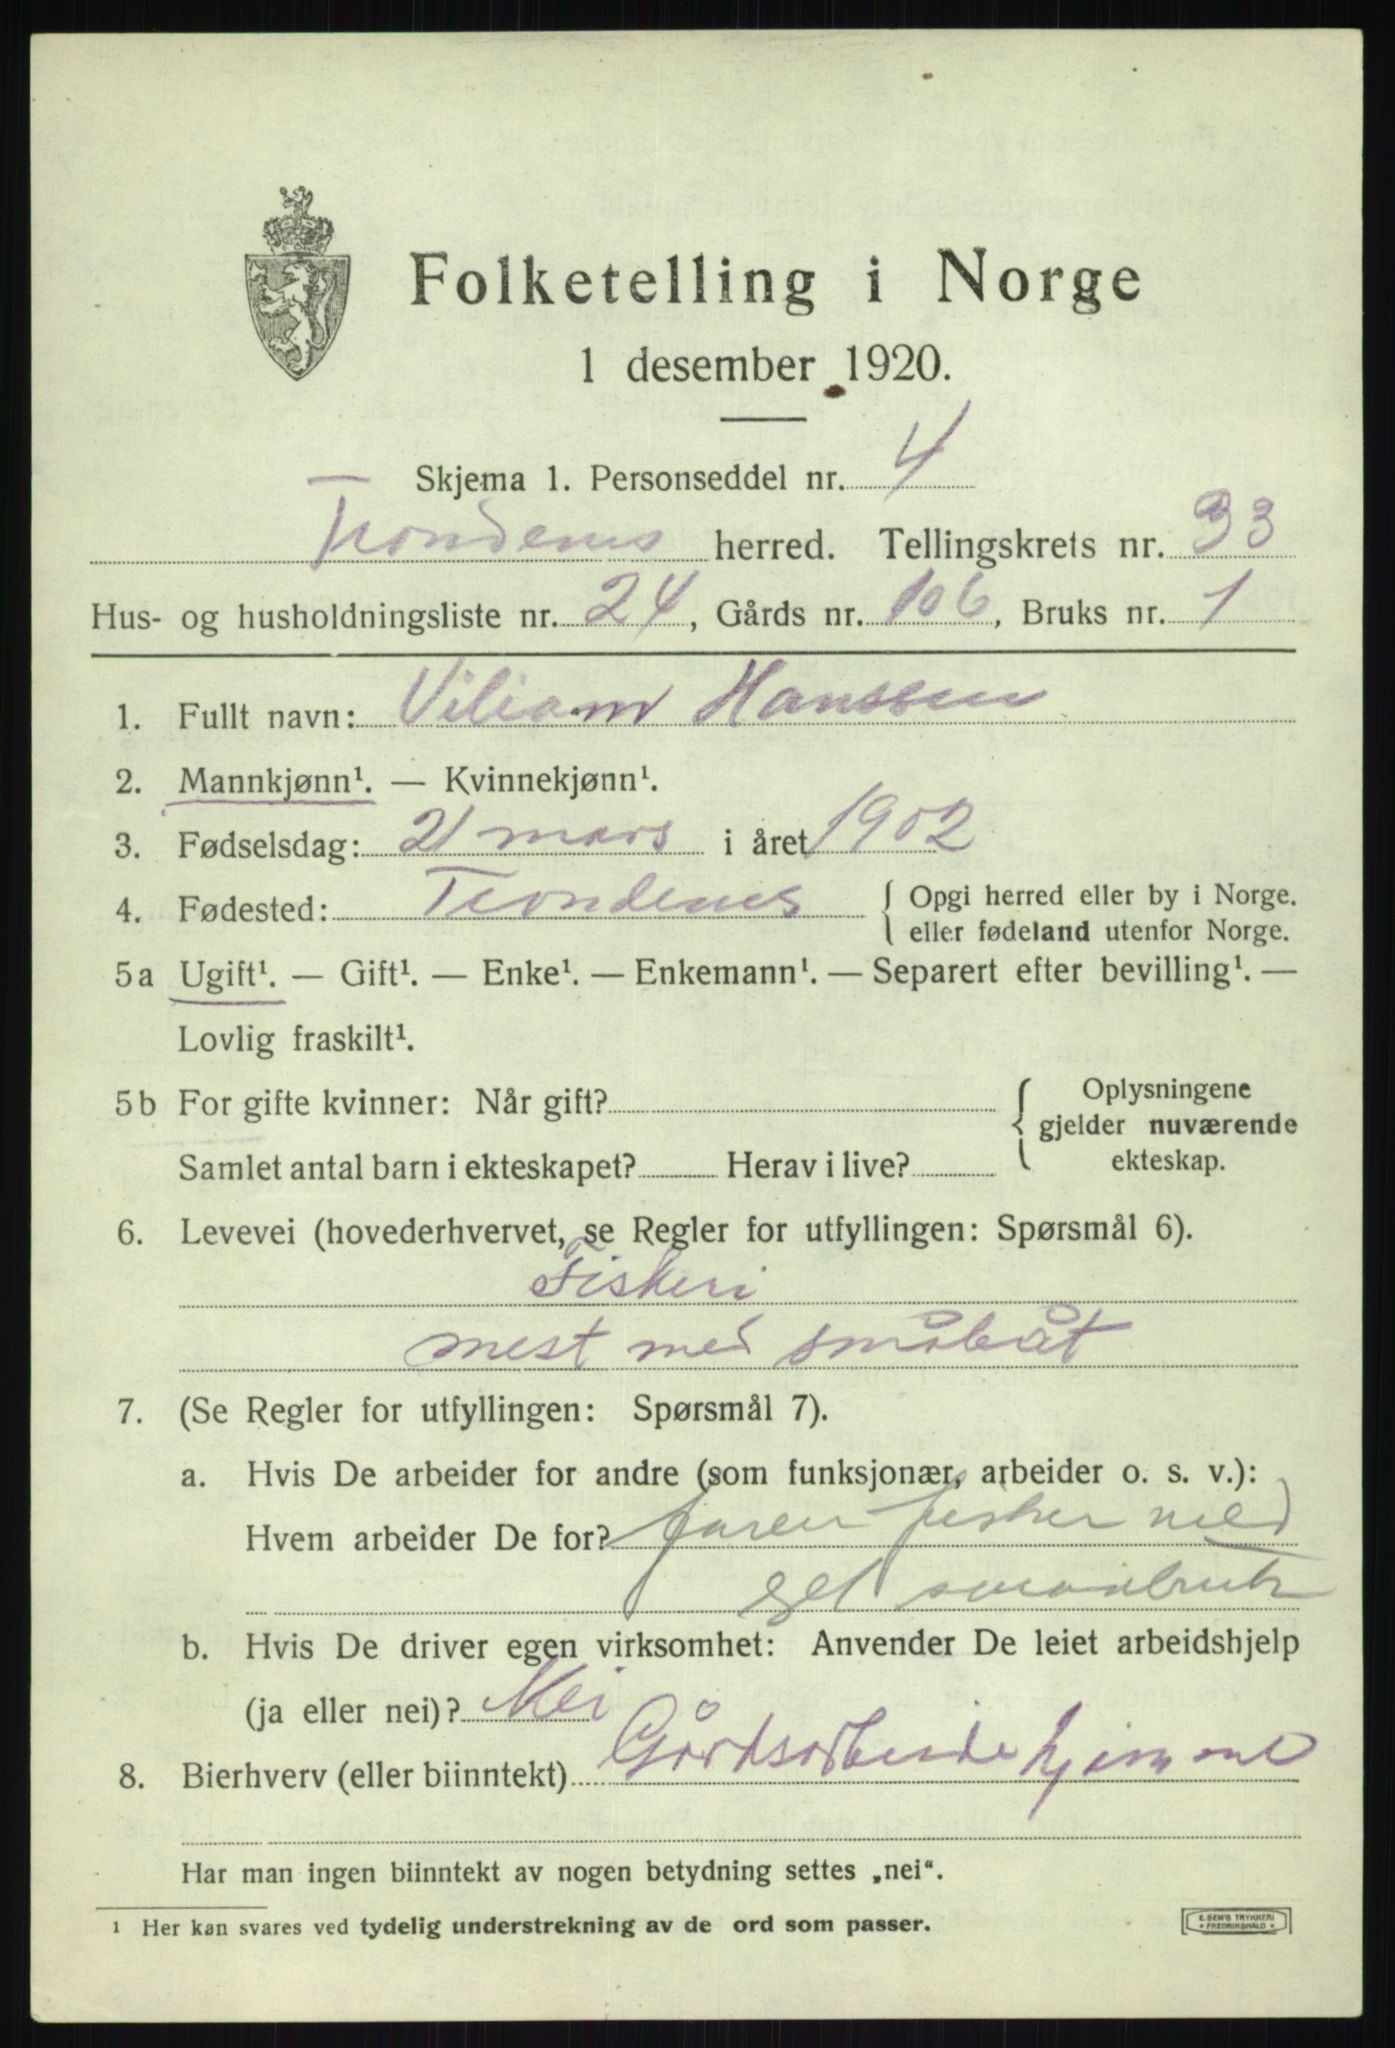 Folketelling i Norge
1 desember 1920.
Skjema 1. Personseddel nr. 4
Trondenes herred. Tellingskrets nr. 33
Hus- og husholdningsliste nr. 24, Gårds nr. 106, Bruks nr. 1
1. Fullt navn: Viliam Hanssen
2. Mannkjønn¹. — Kvinnekjønn¹.
3. Fødselsdag: 21 mars i året 1902
4. Fødested: Trondenes { Opgi herred eller by i Norge.
eller fødeland utenfor Norge.
5a Ugift¹. — Gift¹. — Enke¹. — Enkemann¹. — Separert efter bevilling¹. —
Lovlig fraskilt¹.
5b For gifte kvinner: Når gift? { Oplysningene
gjelder nuværende
Samlet antal barn i ekteskapet? Herav i live? ekteskap.
6. Levevei (hovederhvervet, se Regler for utfyllingen: Spørsmål 6).
Fiskeri
mest med småbåt
7. (Se Regler for utfyllingen: Spørsmål 7).
a. Hvis De arbeider for andre (som funksjonær, arbeider o. s. v.):
Hvem arbeider De for? faren fisker med
eget smaabruk
b. Hvis De driver egen virksomhet: Anvender De leiet arbeidshjelp
(ja eller nei)? Nei
8. Bierhverv (eller biinntekt) Gårdsarbeide hjemme
Har man ingen biinntekt av nogen betydning settes „nei“.
¹ Her kan svares ved tydelig understrekning av de ord som passer.
E. SEM'S TRYKKERI
* FREDRIKSHALD *